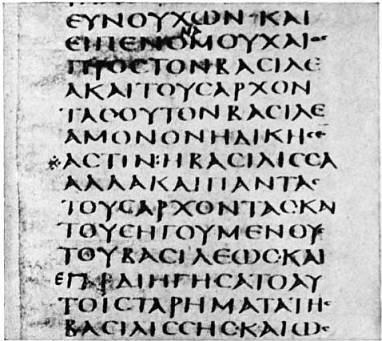 ΕΥΝΟΥΧΩΝ ΚΑΙ
ΕΙΠΕΝ Ο ΜΟΥΧΑΙΟC
ΠΡΟC ΤΟΝ ΒΑCΙΛΕ
Α ΚΑΙ ΤΟΥC ΑΡΧΟΝ
ΤΑC ΟΥ ΤΟΝ ΒΑCΙΛΕ
Α ΜΟΝΟΝ ΗΔΙΚΗCΕ
ΑCΤΙΝ: Η ΒΑCΙΛΙCCΑ
ΑΛΛΑ ΚΑΙ ΠΑΝΤΑC
ΤΟΥC ΑΡΧΟΝΤΑC
ΤΟΥC ΗΓΟΥΜΕΝΟΥC
ΤΟΥ ΒΑCΙΛΕΩC ΚΑΙ
ΔΙΗΓΗCΑΤΟ ΑΥ
ΤΟΙC ΤΑ ΡΗΜΑΤΑ ΤΗC
ΒΑCΙΛΙCCΗC ΚΑΙ ΩC